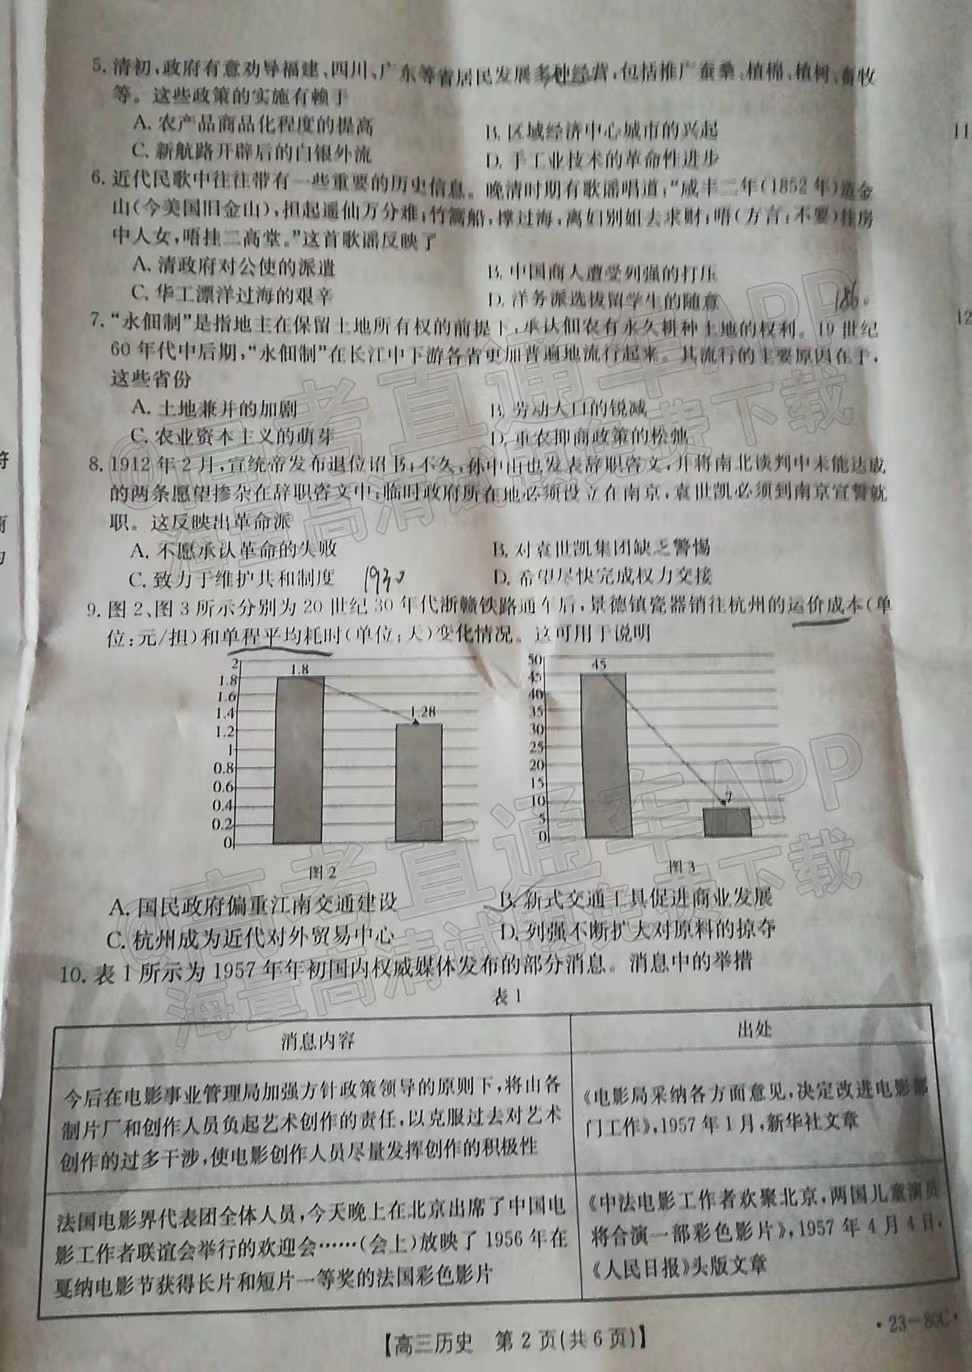 5. 清初,政府有意劝导福建、四川、广东等省居民发展多种经营,包括推广蚕桑、植棉、植树、畜牧
等。这些政策的实施有赖于
A. 农产品商品化程度的提高 B. 区域经济中心城市的兴起
C. 新航路开辟后的白银外流 D. 手工业技术的革命性进步
6. 近代民歌中往往带有一些重要的历史信息。晚清时期有歌谣唱道:“咸丰二年(1852年)造金
山(今美国旧金山),担起遥仙万分难;竹篙船,撑过海,离妇别姐去求财;唔(方言:不要)挂房
中人女,唔挂二高堂。”这首歌谣反映了
A. 清政府对公使的派遣 B. 中国商人遭受列强的打压
C. 华工漂洋过海的艰辛 D. 洋务派选拔留学生的随意
7. “永佃制”是指地主在保留土地所有权的前提下,承认佃农有永久耕种土地的权利。19世纪
60年代中后期,“永佃制”在长江中下游各省更加普遍地流行起来。其流行的主要原因在于,
这些省份
A. 土地兼并的加剧 B. 劳动人口的锐减
C. 农业资本主义的萌芽 D. 重农抑商政策的松弛
8. 1912年2月,宣统帝发布退位诏书;不久,孙中山也发表辞职咨文,并将南北谈判中未能达成
的两条愿望掺杂在辞职咨文中:临时政府所在地必须设立在南京,袁世凯必须到南京宣誓就
职。这反映出革命派
A. 不愿承认革命的失败 B. 对袁世凯集团缺乏警惕
C. 致力于维护共和制度 D. 希望尽快完成权力交接
1930
9. 图2、图3所示分别为20世纪30年代浙赣铁路通车后,景德镇瓷器销往杭州的运价成本(单
位:元/担)和单程平均耗时(单位:天)变化情况。这可用于说明
2
1.8
1.6
1.4
1.2
1
0.8
0.6
0.4
0.2
0
1.8
1.28
图2
50
45
40
35
30
25
20
15
10
5
0
45
7
图3
A. 国民政府偏重江南交通建设 B. 新式交通工具促进商业发展
C. 杭州成为近代对外贸易中心 D. 列强不断扩大对原料的掠夺
10. 表1所示为1957年年初国内权威媒体发布的部分消息。消息中的举措
表1
消息内容 出处
今后在电影事业管理局加强方针政策领导的原则下,将由各
制片厂和创作人员负起艺术创作的责任,以克服过去对艺术
创作的过多干涉,使电影创作人员尽量发挥创作的积极性
《电影局采纳各方面意见,决定改进电影部
门工作》,1957年1月,新华社文章
法国电影界代表团全体人员,今天晚上在北京出席了中国电
影工作者联谊会举行的欢迎会……(会上)放映了1956年在
戛纳电影节获得长片和短片一等奖的法国彩色影片
《中法电影工作者欢聚北京,两国儿童演员
将合演一部彩色影片》,1957年4月4日,
《人民日报》头版文章
【高三历史 第2页(共6页)】
·23-80C·
11
12
@高考直通车APP
海量高清试题免费下载
@高考直通车APP
海量高清试题免费下载